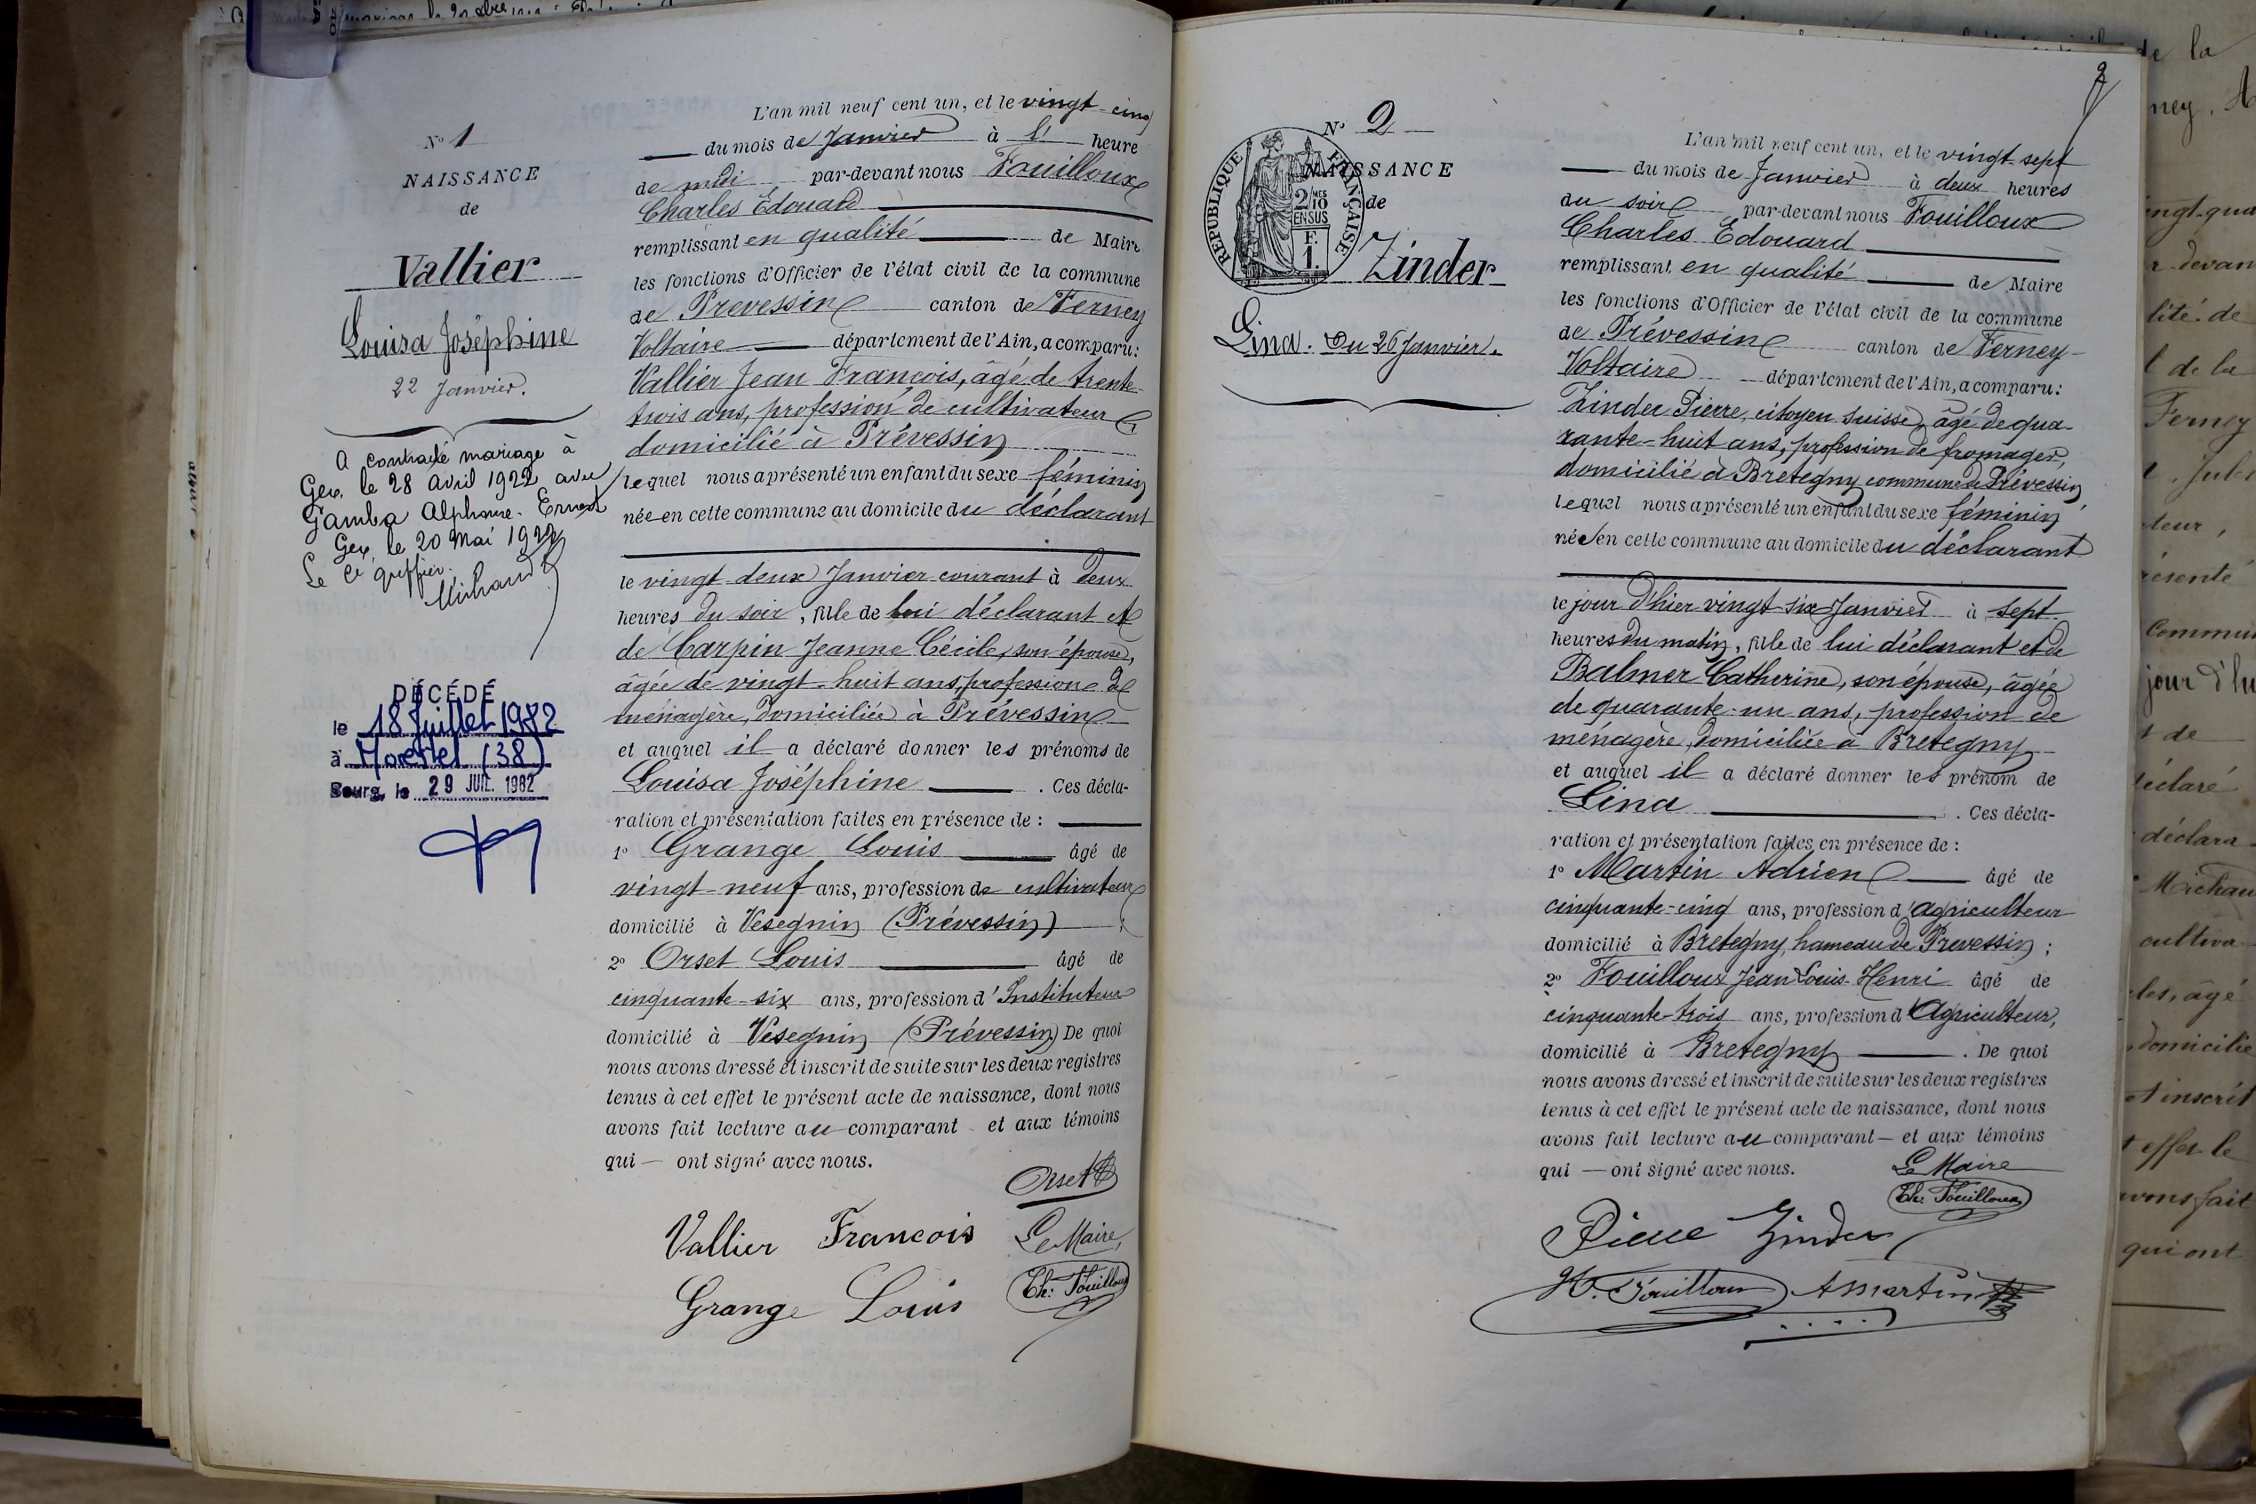 N° 1
NAISSANCE
de
Vallier
Louisa Joséphine
22 Janvier.
A contracté mariage à
Gex, le 28 avril 1922 avec
Gamba Alphonse-Ernest
Gex, le 20 Mai 1922
Le Cis greffier.
Michaud
DÉCÉDÉ
le 18 Juillet 1982
à Morestel (38)
Bourg, le 29 JUIL. 1982
L'an mil neuf cent un, et le vingt-cinq
du mois de Janvier à l' heure
de midi par-devant nous Fouilloux
Charles Édouard
remplissant en qualité de Maire
les fonctions d'Officier de l'état civil de la commune
de Prevessin canton de Ferney
Voltaire département de l'Ain, a comparu:
Vallier Jean François, âgé de trente-
trois ans, profession de cultivateur
domicilié à Prévessin
lequel nous a présenté un enfant du sexe féminin
née en cette commune au domicile du déclarant
le vingt-deux Janvier courant à deux
heures du soir, fille de lui déclarant et
de Carpin Jeanne Cécile, son épouse,
âgée de vingt-huit ans, profession de
ménagère, domiciliée à Prévessin
et auquel il a déclaré donner les prénoms de
Louisa Joséphine . Ces décla-
ration et présentation faites en présence de :
1° Grange Louis âgé de
vingt-neuf ans, profession de cultivateur
domicilié à Vésegnin (Prévessin) ;
2° Orset Louis âgé de
cinquante-six ans, profession d'Instituteur
domicilié à Vésegnin (Prévessin) De quoi
nous avons dressé et inscrit de suite sur les deux registres
tenus à cet effet le présent acte de naissance, dont nous
avons fait lecture au comparant et aux témoins
qui — ont signé avec nous.
Orset
Vallier François Le Maire,
Grange Louis Ch: Fouilloux
2
N° 2
NAISSANCE
de
REPUBLIQUE FRANÇAISE
2/10 MES
EN SUS
F.
1.
Zinder
Lina. Du 26 Janvier.
L'an mil neuf cent un, et le vingt-sept
du mois de Janvier à deux heures
du soir par-devant nous Fouilloux
Charles Édouard
remplissant en qualité de Maire
les fonctions d'Officier de l'état civil de la commune
de Prévessin canton de Ferney-
Voltaire département de l'Ain, a comparu:
Zinder Pierre, citoyen suisse, âgé de qua-
rante-huit ans, profession de fromager,
domicilié à Brétegny commune de Prévessin
lequel nous a présenté un enfant du sexe féminin
née en cette commune au domicile du déclarant
le jour d'hier vingt-six Janvier à sept
heures du matin, fille de lui déclarant et de
Balmer Catherine, son épouse, âgée
de quarante-un ans, profession de
ménagère, domiciliée à Bretegny
et auquel il a déclaré donner les prénom de
Lina . Ces décla-
ration et présentation faites en présence de :
1° Martin Adrien âgé de
cinquante-cinq ans, profession d'agriculteur
domicilié à Bretegny, hameau de Prevessin ;
2° Fouilloux Jean Louis-Henri âgé de
cinquante-trois ans, profession d'Agriculteur,
domicilié à Bretegny . De quoi
nous avons dressé et inscrit de suite sur les deux registres
tenus à cet effet le présent acte de naissance, dont nous
avons fait lecture au comparant — et aux témoins
qui — ont signé avec nous.
Le Maire
Ch: Fouilloux
Pierre Zinder
H. Fouilloux A Martin
de la
ney,
lité de
l de la
Ferney
teur,
résenté
commun
jour d'hu
de
déclaré
déclara
Michau
cultiva
les, âgé
domicilié
et inscrit
t effet le
avons fait
qui ont